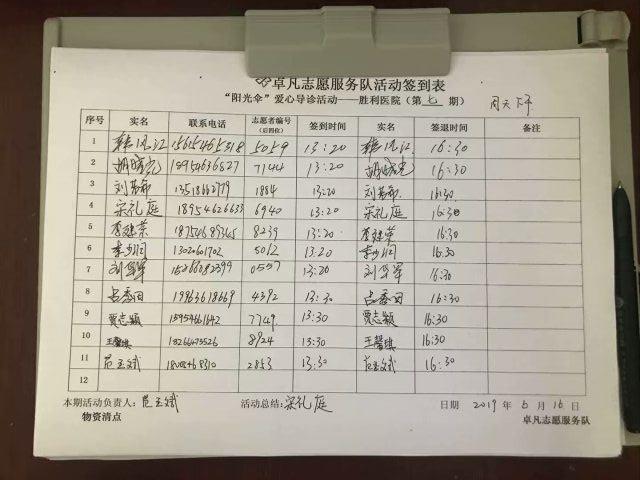 卓凡志愿服务队活动签到表
“阳光伞”爱心导诊活动——胜利医院（第 七 期） 周天下午
序号 实名 联系电话 志愿者编号（后四位） 签到时间 实名 签退时间 备注
1 韩风江 15615465318 5059 13:20 韩风江 16:30
2 胡曙光 18954636827 7144 13:20 胡曙光 16:30
3 刘芳希 13518662779 1884 13:20 刘芳希 16:30
4 宋礼庭 18954626633 6940 13:20 宋礼庭 16:30
5 李建荣 18754689345 8239 13:20 李建荣 16:30
6 李少润 13020601702 5012 13:20 李少润 16:30
7 刘华军 0557 13:20 刘华军 16:30
8 19963618669 4392 13:30 16:30
9 贾志颖 15954661642 7749 13:30 贾志颖 16:30
10 王馨琪 15266475526 8924 13:30 王馨琪 16:30
11 范玉斌 2853 13:30 范玉斌 16:30
12
本期活动负责人：范玉斌 活动总结：宋礼庭 日期 2019 年 6 月 16 日
物资清点 卓凡志愿服务队